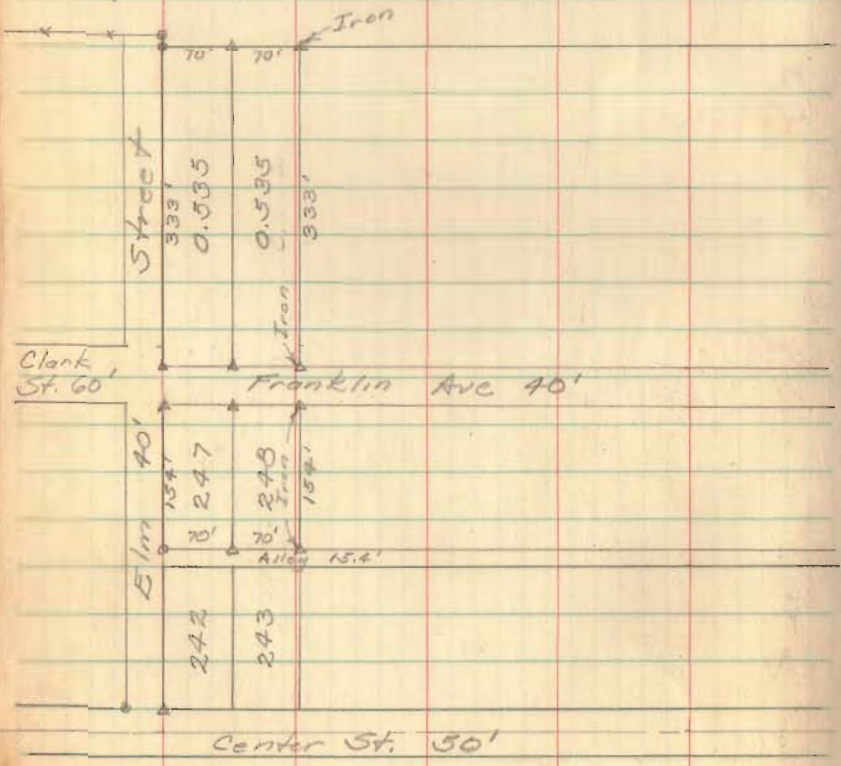 Iron
70' 70'
Street
333'
0.535
0.535
333'
Iron
Clark
St. 60'
Franklin Ave 40'
Elm 40'
154'
247
248
Iron
154'
70' 70'
Alley 15.4'
242
243
Center St. 50'